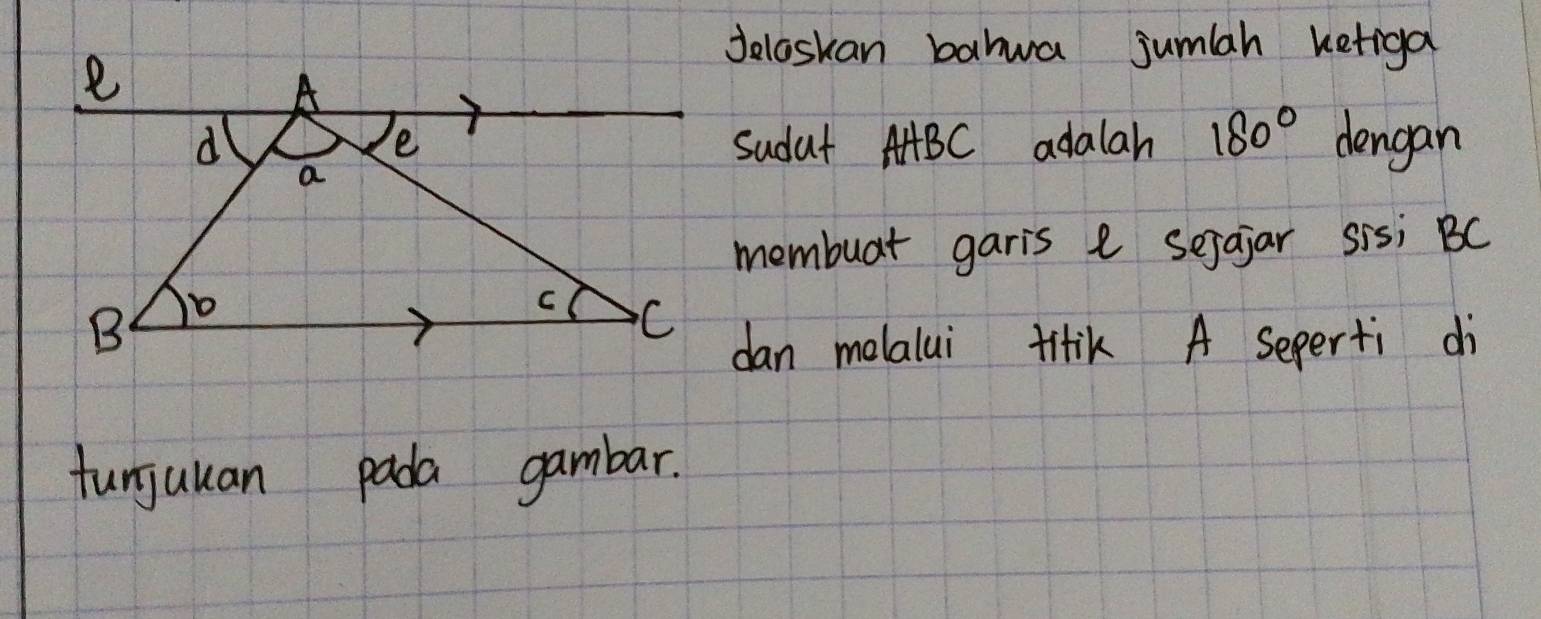 l
A
d
e
a
B
b
c
C
Jelaskan bahwa jumlah ketiga
sudut AHBC adalah 180° dengan
membuat garis l sejajar sisi BC
dan melalui titik A seperti di
tunjukan pada gambar.